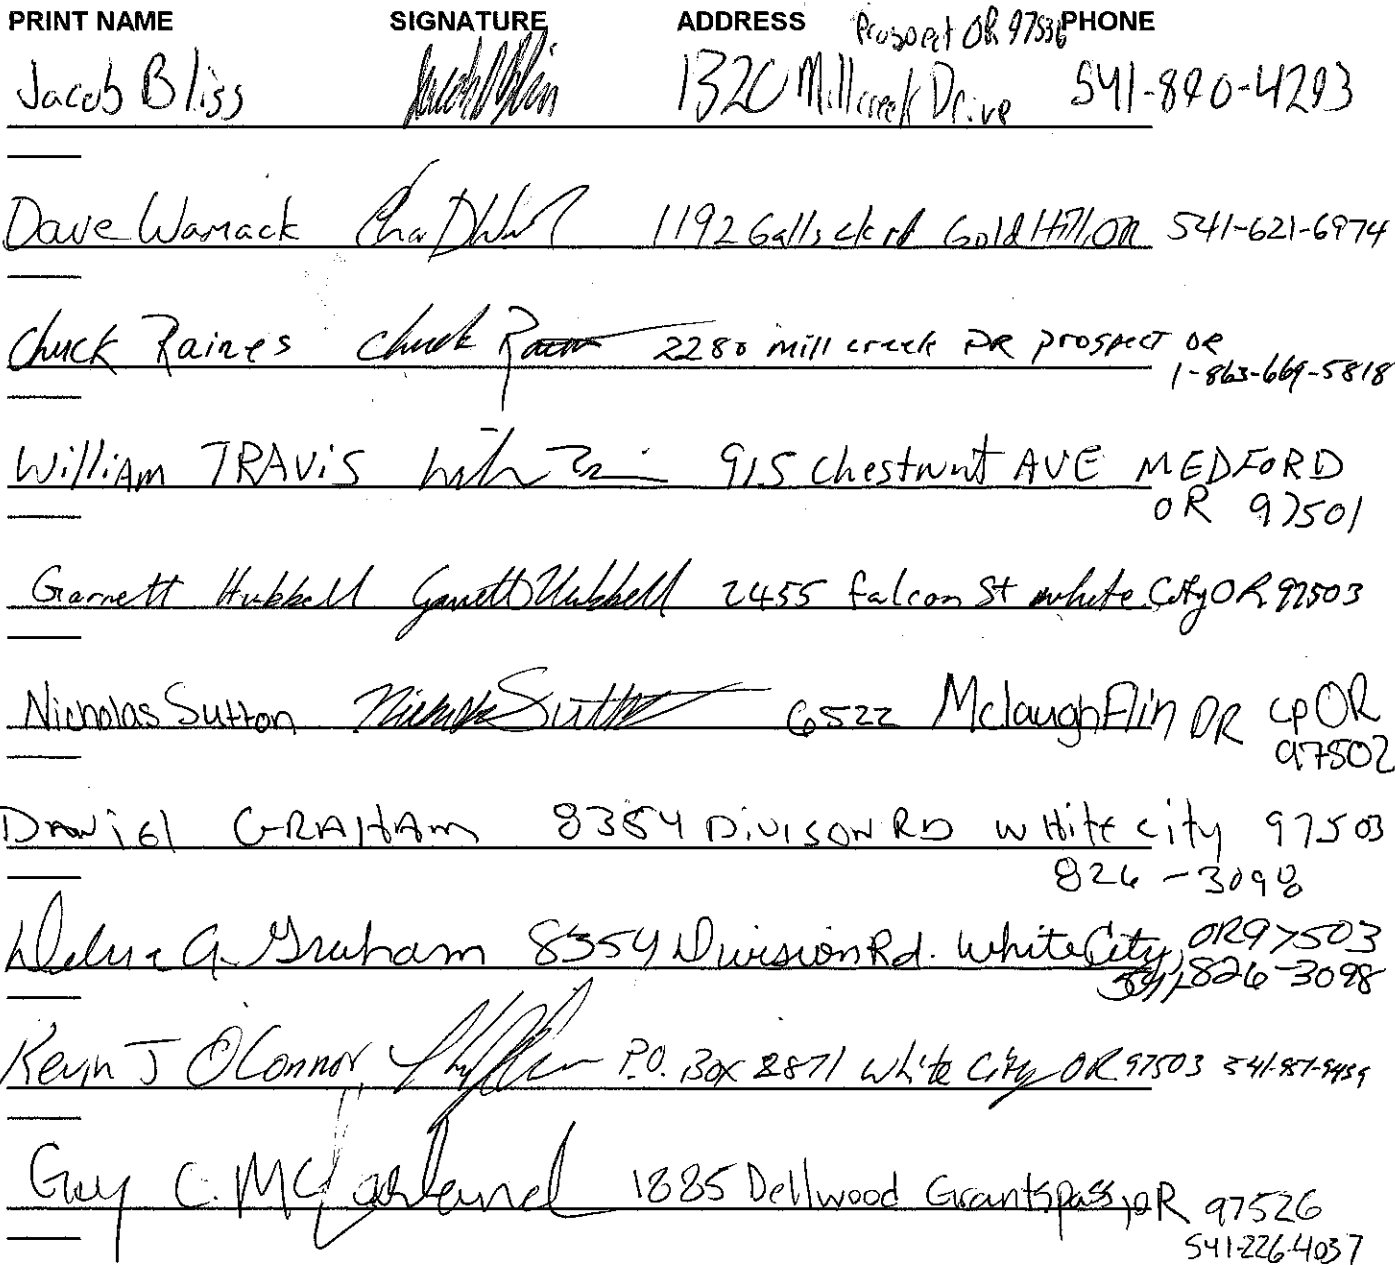 PRINT NAME SIGNATURE ADDRESS Prospect OR 97536 PHONE
Jacob Bliss 1320 Millcreek Drive 541-890-4293
Dave Warnack 1192 Galls ck rd Gold Hill, OR 541-621-6974
Chuck Raines Chuck 2280 mill creek DR prospect OR
1-863-669-5818
William TRAViS 915 Chestnut AVE MEDFORD
OR 97501
Garnett Hubbell Garnett Hubbell 2455 falcon St white City OR 97503
Nicholas Sutton Nicholas Sutton 6522 Mclaughlin DR cp OR
97502
Daniel GRAHAm 8354 DivisoN RD wHite city 97503
826-3098
G. Graham 8354 Division Rd. White City, OR 97503
541-826-3098
Kevin J O'Connor P.O. Box 2871 White City OR 97503
Guy C. McFarland 1885 Dellwood Grants pass, OR 97526
541-226-4037